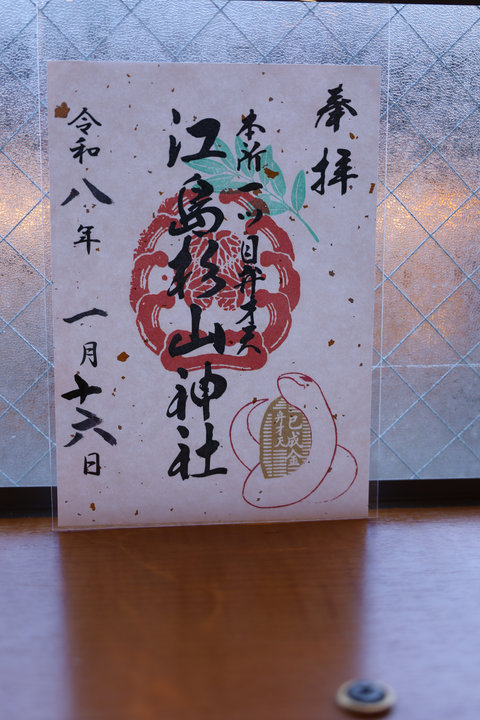 奉拝
本所一ツ目弁才天
江島杉山神社
令和八年 一月十六日
巳成金
弁才天